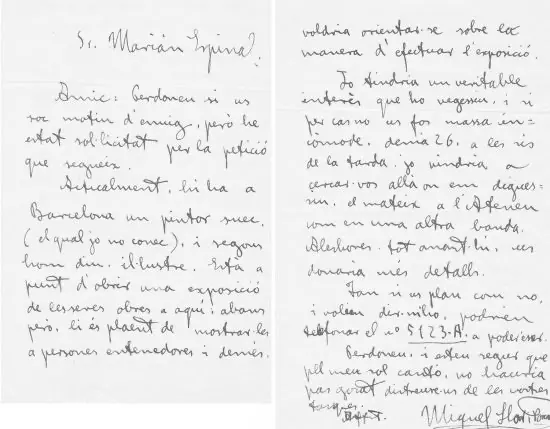 Sr. Marián Espinal
Amic: Perdoneu si us
soc motiu d'enuig, però he
estat sol·licitat per la petició
que segueix.
Actualment, hi ha a
Barcelona un pintor suec,
(el qual jo no conec), i segons
hom diu, il·lustre. Està a
punt d'obrir una exposició
de les seves obres a aquí; abans
però, li és plaent de mostrar-les
a persones entenedores i demés,
voldria orientar-se sobre la
manera d'efectuar l'exposició.
Jo tindria un veritable
interès que ho vegessiu, i si
per cas no us fos massa in-
còmode, demà 26, a les sis
de la tarda, jo vindria a
cercar-vos allà on em digues-
siu, el mateix a l'Ateneu
com en una altra banda.
Aleshores, tot anant-hi, us
donaria més detalls.
Tan si us plau com no,
i voleu dir-m'ho, podrieu
telefonar el nº 5123-A. a poder ésser.
Perdoneu, i esteu segur que
pel meu sol cantó, no hauria
pas gosat distreure-us de les vostres
tasques.
Miquel Llor i